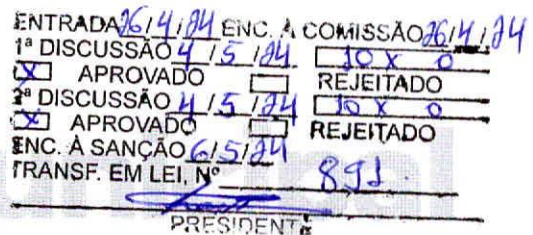 ENTRADA 26/4/24 ENC. À COMISSÃO 26/4/24
1ª DISCUSSÃO 4/5/24 10 X 0
X APROVADO REJEITADO
2ª DISCUSSÃO 4/5/24 10 X 0
X APROVADO REJEITADO
ENC. À SANÇÃO 6/5/24
TRANSF. EM LEI, Nº 891.
PRESIDENTE